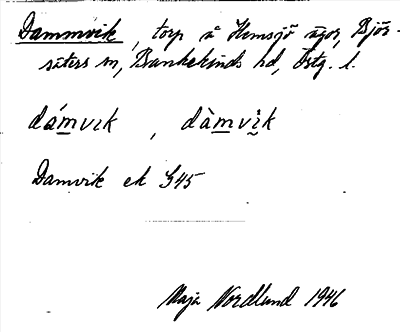 Dammvik, torp å Hemsjö ägor, Björ-
säters sn, Bankekinds hd, Östg. l.
dámvık, dàmvi̊k
Damvik ek S45
Maja Nordlund 1946